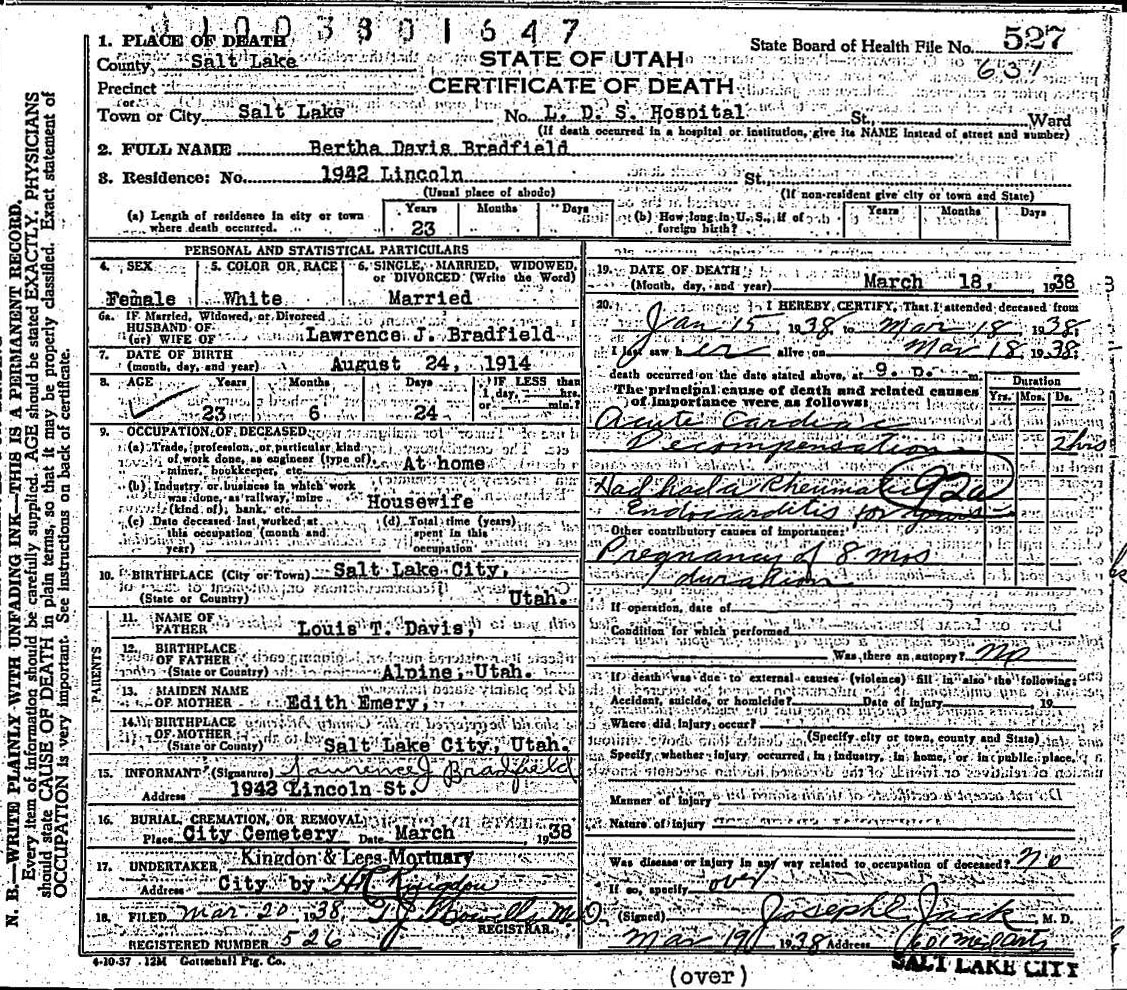 1 1 0 0 3 8 0 1 6 4 7
1. PLACE OF DEATH
County Salt Lake
Precinct
or
Town or City Salt Lake
STATE OF UTAH
CERTIFICATE OF DEATH
State Board of Health File No. 527
631
No. L. D. S. Hospital St., Ward
(If death occurred in a hospital or institution, give its NAME instead of street and number)
2. FULL NAME Bertha Davis Bradfield
3. Residence: No. 1942 Lincoln St.,
(Usual place of abode) (If non-resident give city or town and State)
(a) Length of residence in city or town where death occurred. Years 23 Months Days
(b) How long in U. S., if of foreign birth? Years Months Days
PERSONAL AND STATISTICAL PARTICULARS
4. SEX Female
5. COLOR OR RACE White
6. SINGLE, MARRIED, WIDOWED, or DIVORCED (Write the Word) Married
6a. IF Married, Widowed, or Divorced
HUSBAND OF
(or) WIFE OF Lawrence J. Bradfield
7. DATE OF BIRTH
(month, day, and year) August 24, 1914
8. AGE Years 23 Months 6 Days 24
IF LESS than 1 day, hrs. or min.?
9. OCCUPATION OF DECEASED
(a) Trade, profession, or particular kind of work done, as engineer (type of), miner, bookkeeper, etc. At home
(b) Industry or business in which work was done, as railway, mine (kind of), bank, etc. Housewife
(c) Date deceased last worked at this occupation (month and year)
(d) Total time (years) spent in this occupation
10. BIRTHPLACE (City or Town) Salt Lake City,
(State or Country) Utah.
PARENTS
11. NAME OF FATHER Louis T. Davis,
12. BIRTHPLACE OF FATHER
(State or Country) Alpine, Utah.
13. MAIDEN NAME OF MOTHER Edith Emery,
14. BIRTHPLACE OF MOTHER
(State or Country) Salt Lake City, Utah.
15. INFORMANT (Signature) Lawrence J Bradfield
Address 1942 Lincoln St.
16. BURIAL, CREMATION, OR REMOVAL
Place City Cemetery Date March 1938
17. UNDERTAKER Kingdon & Lees Mortuary
Address City by Kingdon
18. FILED Mar. 20, 1938, M.D.
REGISTRAR.
REGISTERED NUMBER 526
4-10-37 12M Gottschall Ptg. Co.
19. DATE OF DEATH
(Month, day, and year) March 18, 1938
20. I HEREBY CERTIFY, That I attended deceased from
Jan 15, 1938, to Mar 18, 1938.
I last saw her alive on Mar 18, 1938,
death occurred on the date stated above, at 9. p. m.
The principal cause of death and related causes of importance were as follows:
Duration
Yrs. Mos. Ds.
Acute Cardiac
Decompensation 2 hrs
Had had a Rheumatic 92a
Endocarditis for years
Other contributory causes of importance:
Pregnancy of 8 mos
duration
If operation, date of
Condition for which performed
Was there an autopsy? no
If death was due to external causes (violence) fill in also the following:
Accident, suicide, or homicide? Date of Injury , 19
Where did injury occur?
(Specify city or town, county and State)
Specify whether injury occurred in industry, in home, or in public place.
Manner of injury
Nature of injury
Was disease or injury in any way related to occupation of deceased? no
If so, specify over
(Signed) Joseph E. Jack, M. D.
Mar 19, 1938 Address 601 Med Arts
SALT LAKE CITY
(over)
N. B.—WRITE PLAINLY WITH UNFADING INK—THIS IS A PERMANENT RECORD.
Every item of information should be carefully supplied. AGE should be stated EXACTLY. PHYSICIANS
should state CAUSE OF DEATH in plain terms, so that it may be properly classified. Exact statement of
OCCUPATION is very important. See instructions on back of certificate.